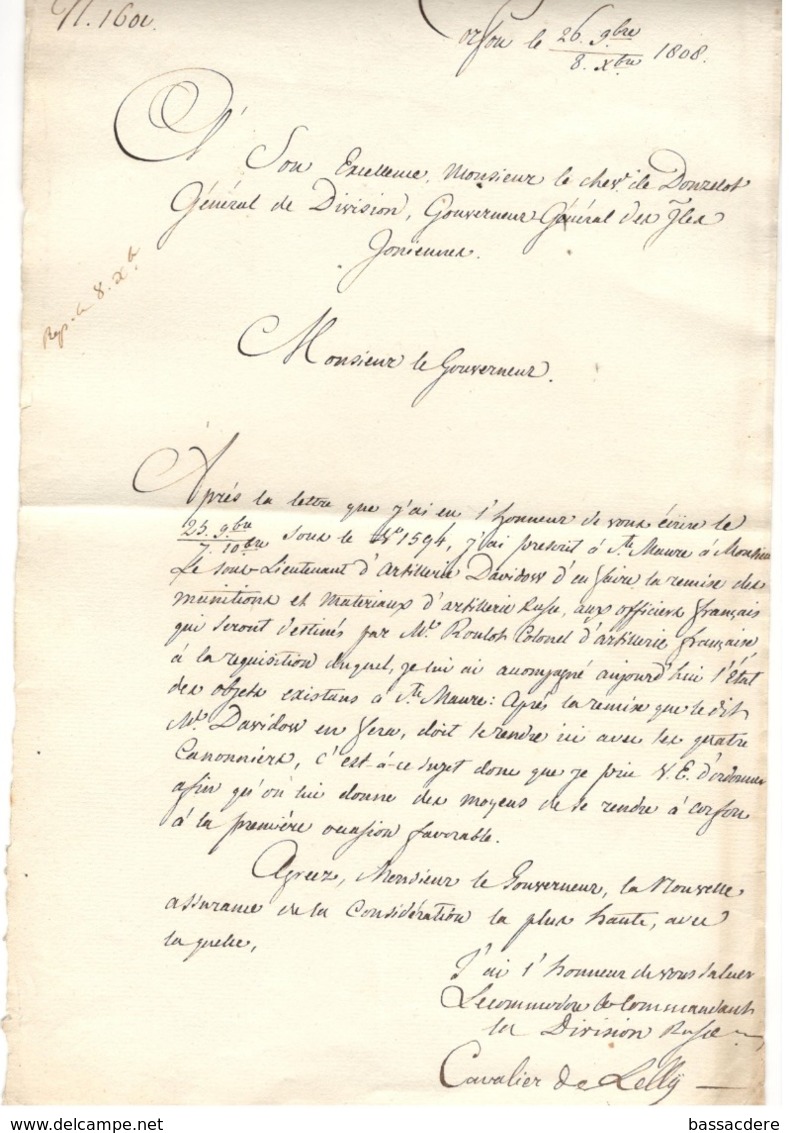 N. 1601.
Corfou le 26. 9bre / 8. Xbre 1808.
A Son Excellence, Monsieur le chev.r de Donzelot
Général de Division, Gouverneur Général des Iles
Joniennes.
Rep. le 8. Xb.
Monsieur le Gouverneur.
Après la lettre que j'ai eu l'honneur de vous écrire le
25. 9bre / 7. 10bre sous le N° 1594, j'ai prescrit à Ste Maure à Monsieur
Le sous-Lieutenant d'Artillerie Davidow d'en faire la remise des
munitions et materiaux d'artillerie Russe, aux officiers français
qui seront destinés par Mr. Roulot Colonel d'artillerie française
à la requisition duquel, je lui ai accompagné aujourd'hui l'État
des objets existans à Ste Maure: Après la remise que le dit
Mr. Davidow en fera, doit se rendre ici avec les quatre
Canonniers, c'est-à-ce sujet donc que je prie V. E. d'ordonner
afin qu'on lui donne des moyens de se rendre à Corfou
à la première occasion favorable.
Agreez, Monsieur le Gouverneur, la Nouvelle
assurance de la Considération la plus haute, avec
laquelle,
J'ai l'honneur de vous saluer
Le Commandant
la Division Russe
Cavalier de Lelly
bassacdere